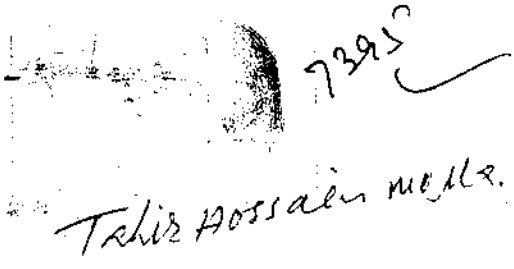 7395
Tahir Hossain Molla.